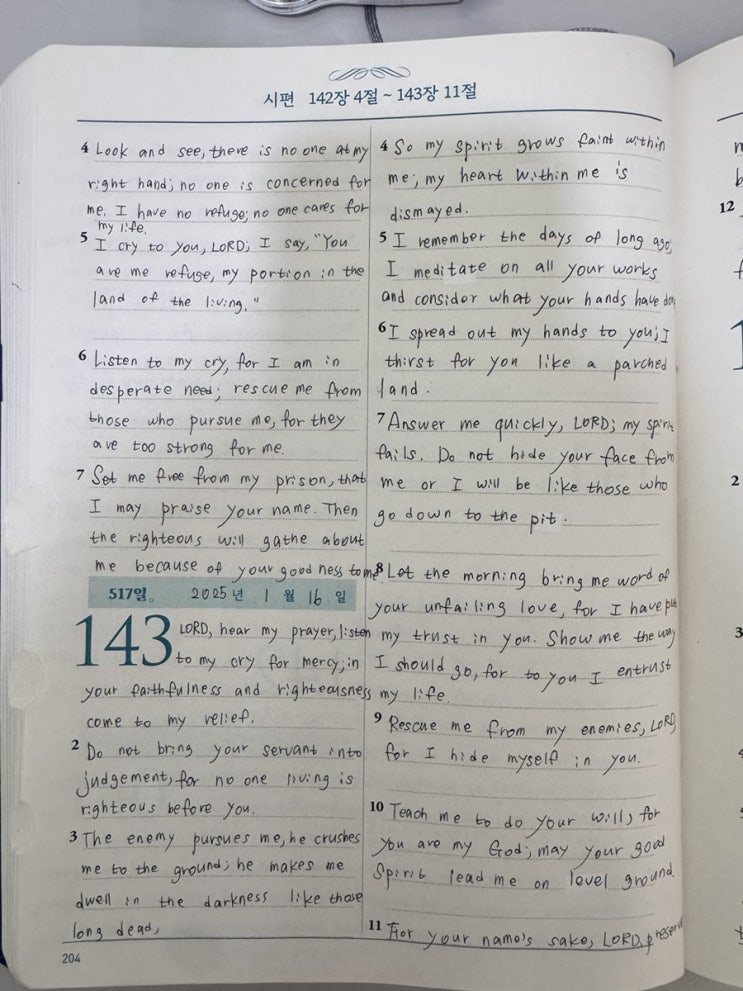 시편 142장 4절 ~ 143장 11절
4 Look and see, there is no one at my
right hand; no one is concerned for
me. I have no refuge; no one cares for
my life.
5 I cry to you, LORD; I say, "You
are me refuge, my portion in the
land of the living."
6 Listen to my cry, for I am in
desperate need; rescue me from
those who pursue me, for they
are too strong for me.
7 Set me free from my prison, that
I may praise your name. Then
the righteous will gathe about
me because of your goodness to me.
517일. 2025년 1월 16일
143 LORD, hear my prayer, listen
to my cry for mercy; in
your faithfulness and righteousness
come to my relief.
2 Do not bring your servant into
judgement, for no one living is
righteous before you.
3 The enemy pursues me, he crushes
me to the ground; he makes me
dwell in the darkness like those
long dead,
204
4 So my spirit grows faint within
me; my heart within me is
dismayed.
5 I remember the days of long ago;
I meditate on all your works
and consider what your hands have
6 I spread out my hands to you; I
thirst for you like a parched
land.
7 Answer me quickly, LORD; my spirit
fails. Do not hide your face from
me or I will be like those who
go down to the pit.
8 Let the morning bring me word of
your unfailing love, for I have put
my trust in you. Show me the way
I should go, for to you I entrust
my life.
9 Rescue me from my enemies, LORD,
for I hide myself in you.
10 Teach me to do your will, for
you are my God; may your good
Spirit lead me on level ground.
11 For your name's sake, LORD, preserve
12
2
3